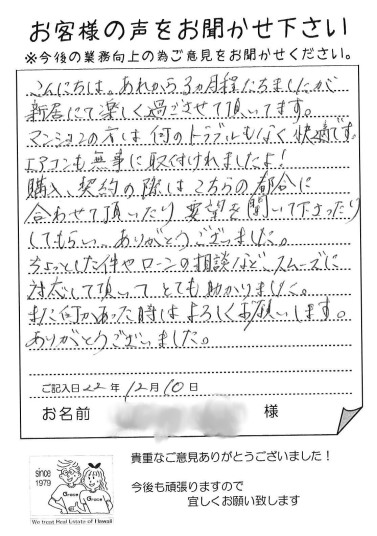 お客様の声をお聞かせ下さい
※今後の業務向上の為ご意見をお聞かせください。
こんにちは。あれから3ヵ月程たちましたが
新居にて楽しく過ごさせて頂いてます。
マンションの方は何のトラブルもなく快適です。
エアコンも無事に取付けれましたよ!
購入、契約の際はこちらの都合に
合わせて頂いたり 要望を聞いて下さったり
してもらい、ありがとうございました。
ちょっとした件やローンの相談など、スムーズに
対応して頂いて とても助かりました。
また何かあった時はよろしくお願いします。
ありがとうございました。
ご記入日22年12月10日
お名前 様
since
1979
Grace
Grace
We trust Real Estate of Hawaii
貴重なご意見ありがとうございました!
今後も頑張りますので
宜しくお願い致します